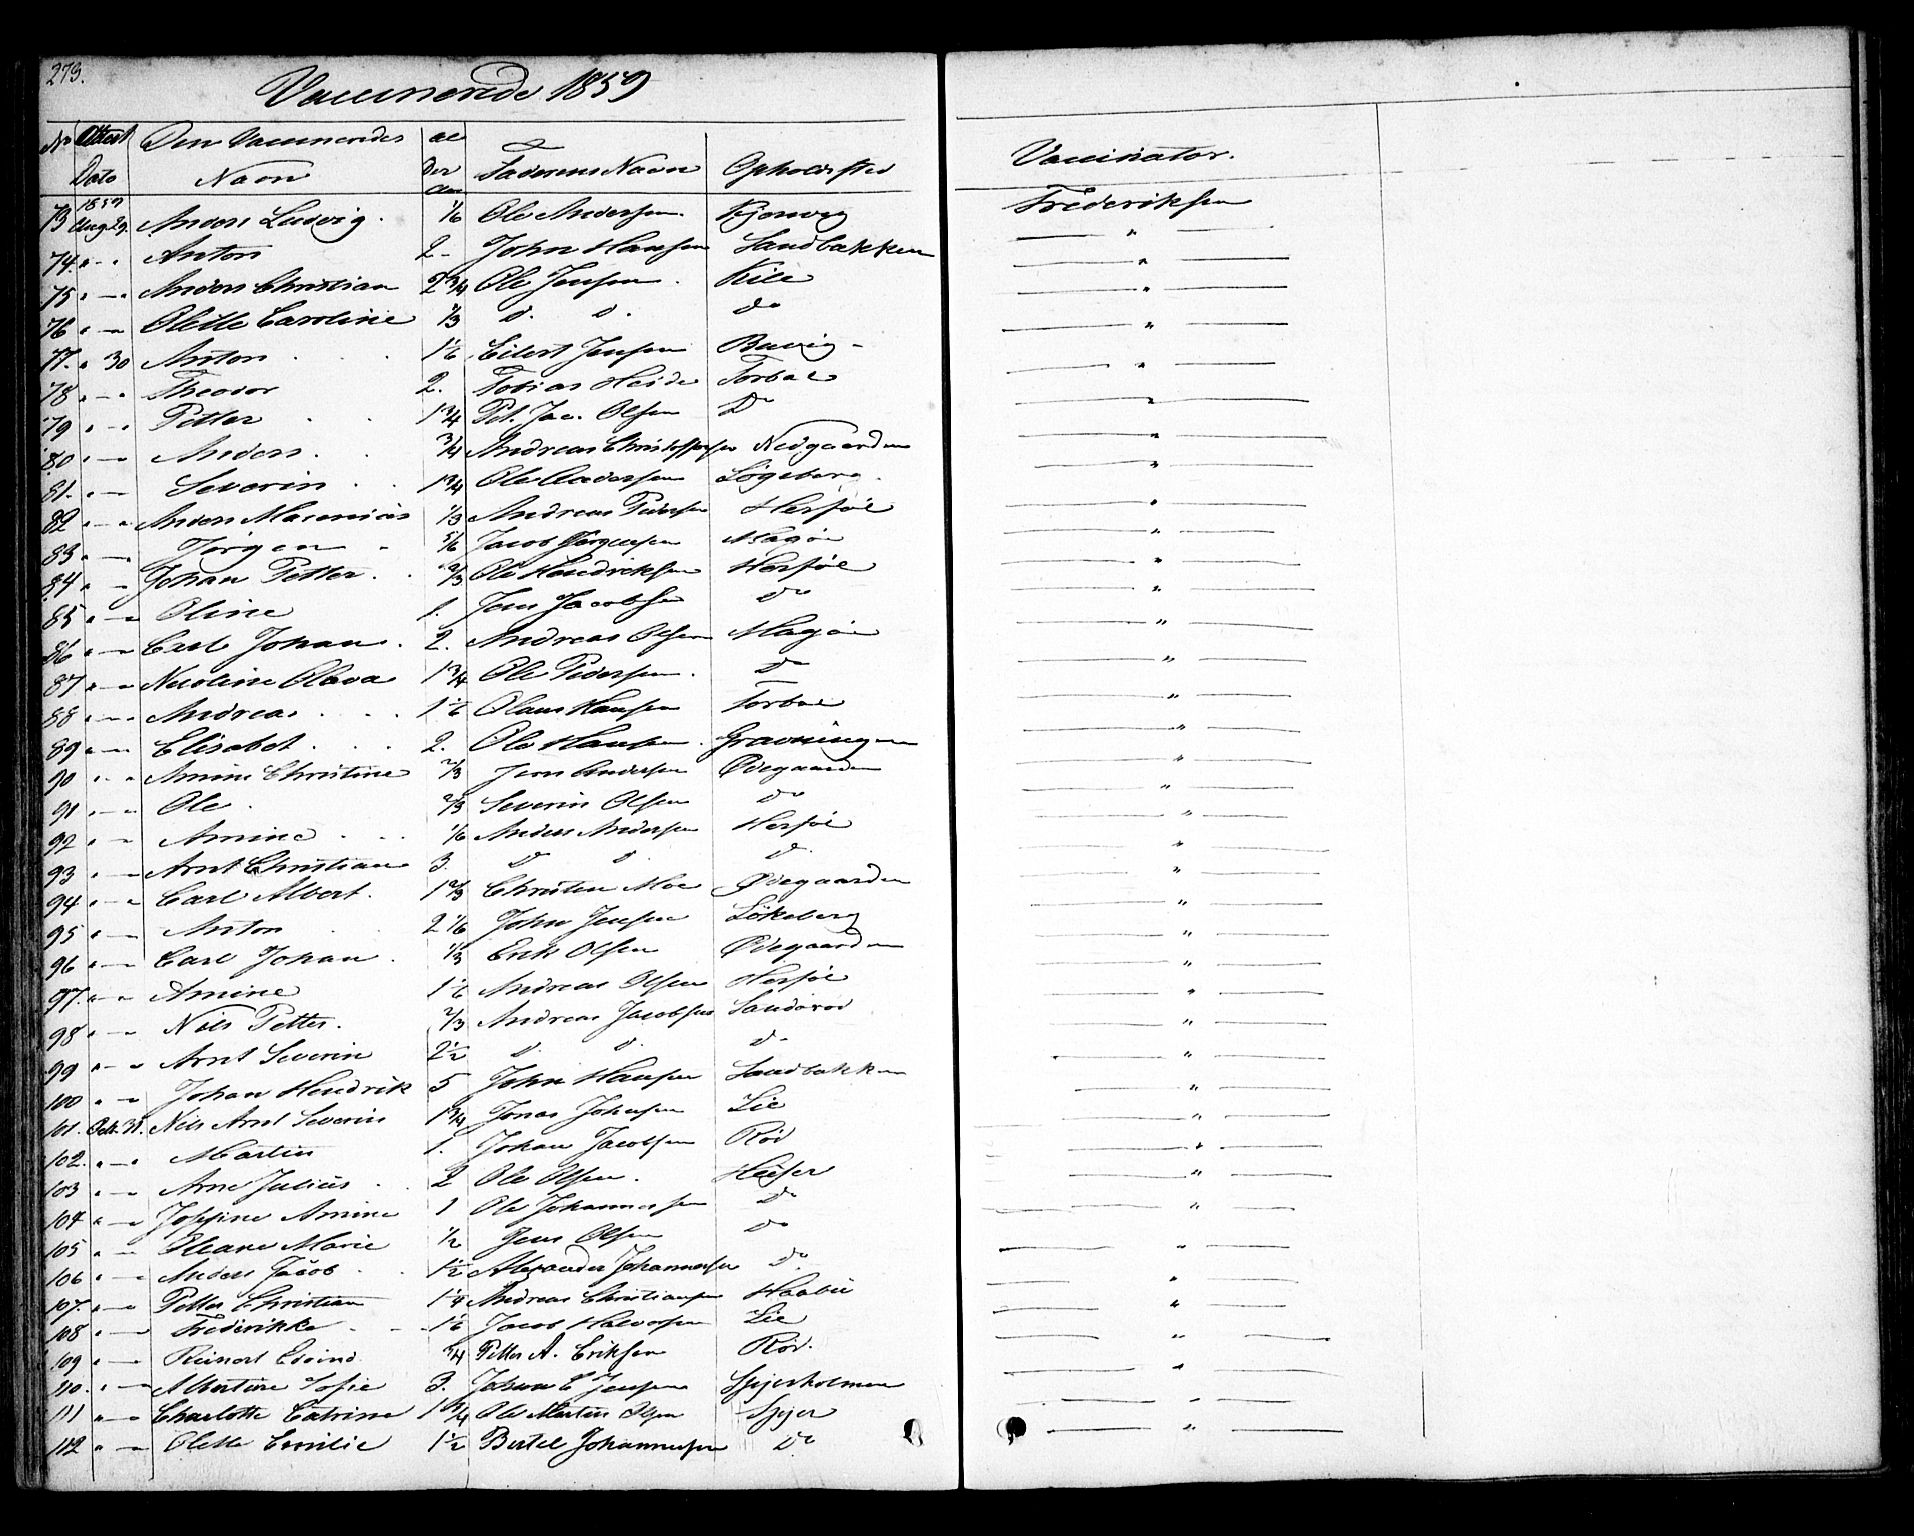 273.
Vaccinerede 1859
No Attest Dato Den Vaccineredes Navn Al der Aar Faderens Navn Opholdssted Vaccinator.
73 1859 Aug. 29. Anders Ludvig. 1/6 Ole Andersen. Kjersvig Frederiksen
74. " — " Anton 2 - John Hansen Sandbakken — " —
75 " — " Anders Christian 2 3/4 Ole Jensen. Kile — " —
76 " — Olette Caroline 1/3 D. D. do — " —
77. " 30 Anton 1 1/2 Eilert Jensen Buvig — " —
78 " — " Theodor 2. Tobias Heide Torbal — " —
79 " — " Petter 1 3/4 Pet. Jac. Olsen Do — " —
80 " — Anders 3/4 Andreas Christoffersen Nedgaarden — " —
81. " — Severin 1 3/4 Ole Andersen Løgeberg. — " —
82 " — " Anders Marenius 1/3 Andreas Pedersen Herføl — " —
83 " — Jørgen 5/6 Jacob Jørgensen Magøn — " —
84 " — Johan Petter. 2/3 Ole Hendriksen Herføl — " —
85 " — Oline 1. Jens Jacobsen Do — " —
86 " — Carl Johan. 2. Andreas Olsen Magøn — " —
87 " — Nicoline Olava 1 3/4 Ole Pedersen. Do — " —
88 " — Andreas 1 1/2 Olaus Hansen Torbal — " —
89 " — Elisabet 2. Ole Hansen. Gravningen — " —
90 " — " Amine Christine 2/3 Jens Andersen Ødegaarden — " —
91 " — " Ole. 2/3 Severin Olsen Do — " —
92 " — Amine 1/6 Anders Andersen Herføl — " —
93 " — Arnt Christian 3. D D. D. — " —
94 " — " Carl Albert. 1 2/3 Christen Moe Ødegaarden — " —
95 " — Anton 2 1/6 John Jensen Løkeberg — " —
96 " — Carl Johan. 1/3 Erik Olsen Ødegaarden — " —
97. " — " Amine 1 1/2 Andreas Olsen Herføl — " —
98 " — " Nils Petter. 2/3 Andreas Jacobsen Sandørød — " —
99 " — " Arnt Severin 2 1/2 D. D. D - — " —
100 " — " Johan Hendrik 5 John Hansen Sandbakken — " —
101. Oct. 31. Nils Arnt Severin 1 3/4 Jonas Johnsen Lie — " —
102. " — " Martin 1. Johan Jacobsen Rød — " —
103 " — Arne Julius 2 Ole Olsen. — " —
104 " — Josefine Amine 1 Ole Johannessen Do — " —
105 " — Oleane Marie 1/2 Jens Olsen Do — " —
106 " — " Anders Jacob. 1 1/2 Alexander Johannessen Do. — " —
107. " — " Petter Christian 1 1/4 Andreas Christiansen — " —
108 " — " Frederikke 1 1/2 Jacob Halvorsen Lie — " —
109 " — Reinert Edvind 3/4 Petter A. Eriksen Rød. — " —
110. " — Albertine Sofie 3. Johan E Jensen Spjerholmen — " —
111 " — Charlotte Catrine 1 3/4 Ole Martin Olsen Spjær — " —
112 " — Olette Emilie 1 1/2 Bertel Johannessen Do — " —